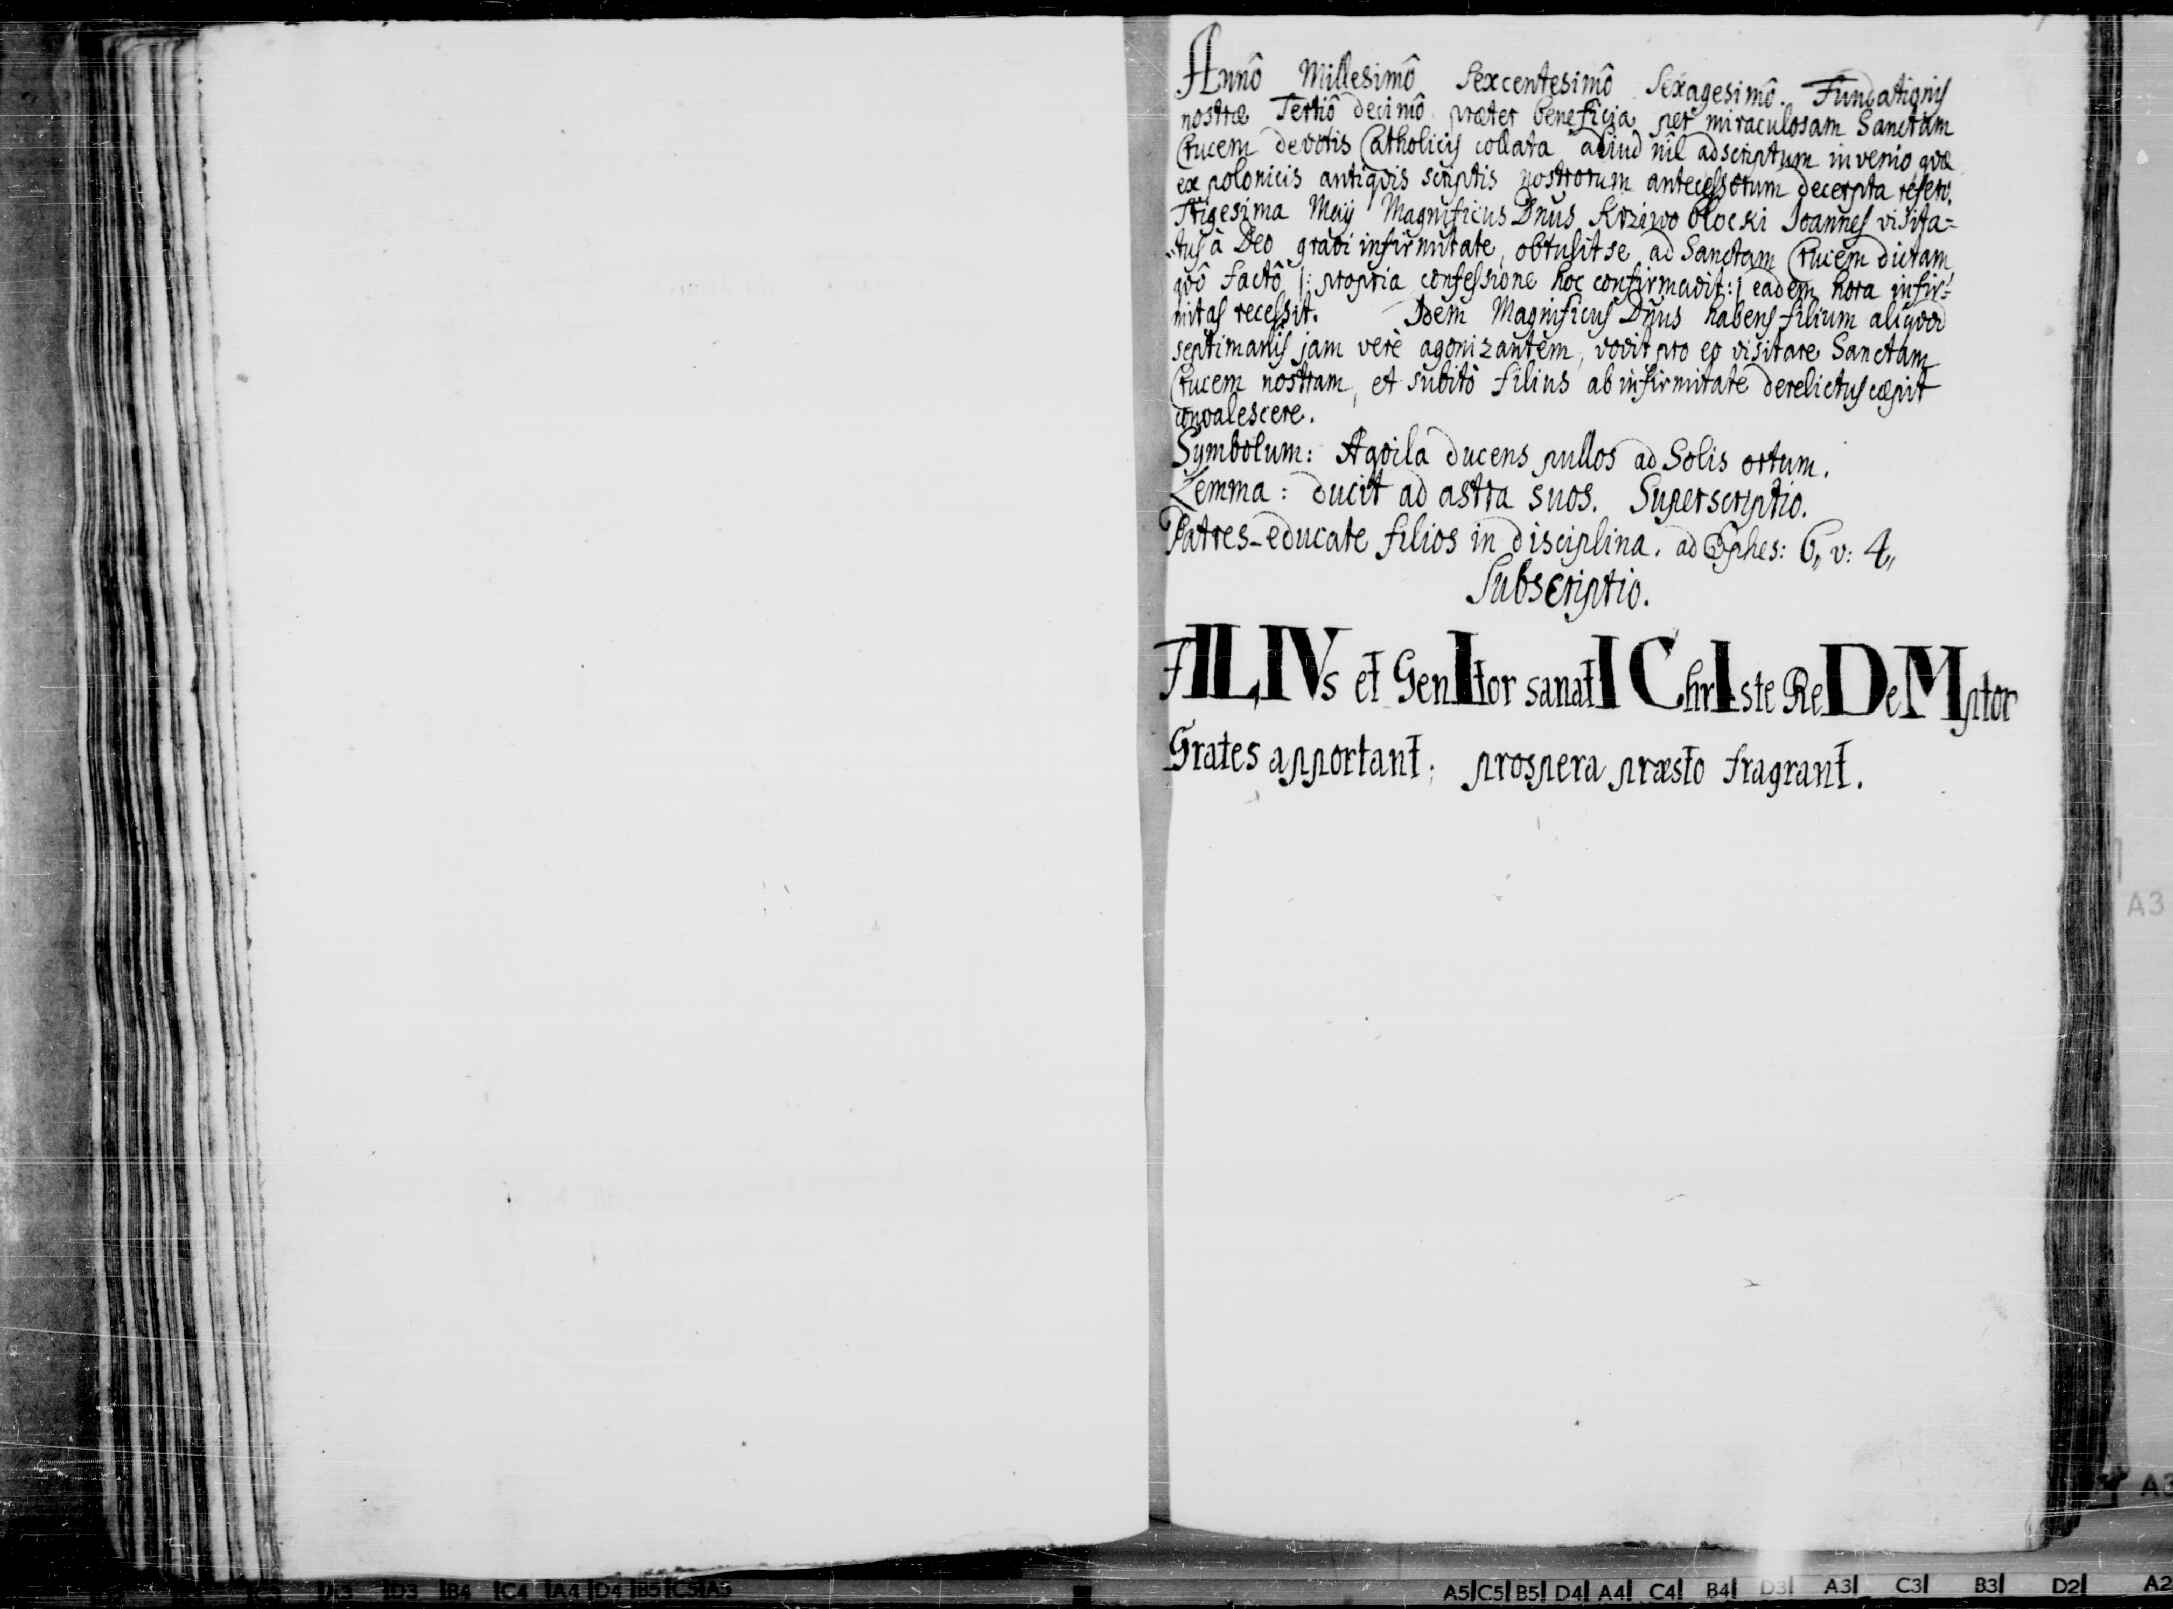 Annô Millesimô Sexcentesimô Sexagesimô. Fundationis
nostræ Tertiô decimô præter beneficia per miraculosam Sanctam
Crucem devotis Catholicis collata aliud nîl adscriptum invenio quæ
ex polonicis antiquis scriptis nostrorum antecessorum decerpta refero.
Trigesima Maij Magnificus Dnus Krziwobłocki Joannes visita=
"tus à Deo gravi infirmitate, obtulit se ad Sanctam Crucem dictam
quô factô |: propria confessione hoc confirmavit :| eadem hora infir=
mitas recessit. Idem Magnificus Dnus habens filium aliquod
septimanis jam verè agonizantem, vovit pro eo visitare Sanctam
Crucem nostram, et subitò filius ab infirmitate derelictus cæpit
convalescere.
Symbolum: Aquila ducens pullos ad Solis ortum.
Lemma: ducit ad astra suos. Superscriptio.
Patres educate filios in disciplina. ad Ephes: 6,, v: 4,,
Subscriptio.
FILIVs et GenItor sanatI ChrIste ReDeMptor
Grates apportant; prospera præsto fragrant.
A3
A3
A3 D3 B4 C4 A4 D4 B5 C5 A5
A5 C5 B5 D4 A4 C4 B4 D3 A3 C3 B3 D2 A2